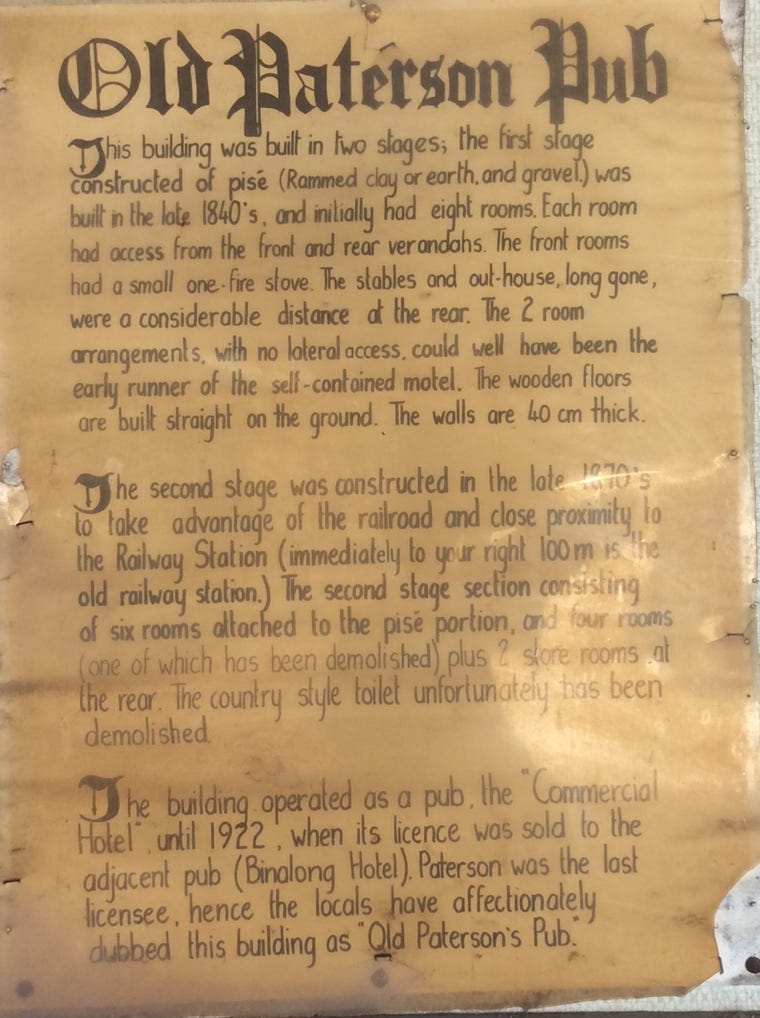 Old Paterson Pub
This building was built in two stages; the first stage
constructed of pisé (Rammed clay or earth, and gravel.) was
built in the late 1840's, and initially had eight rooms. Each room
had access from the front and rear verandahs. The front rooms
had a small one-fire stove. The stables and out-house, long gone,
were a considerable distance at the rear. The 2 room
arrangements, with no lateral access, could well have been the
early runner of the self-contained motel. The wooden floors
are built straight on the ground. The walls are 40 cm thick.
The second stage was constructed in the late 1870's
to take advantage of the railroad and close proximity to
the Railway Station (immediately to your right 100m is the
old railway station.) The second stage section consisting
of six rooms attached to the pisé portion, and four rooms
(one of which has been demolished) plus 2 store rooms at
the rear. The country style toilet unfortunately has been
demolished.
The building operated as a pub, the "Commercial
Hotel" until 1922, when its licence was sold to the
adjacent pub (Binalong Hotel). Paterson was the last
licensee, hence the locals have affectionately
dubbed this building as "Old Paterson's Pub."